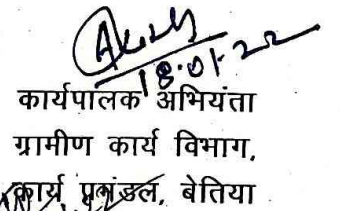 18.01.22
कार्यपालक अभियंता
ग्रामीण कार्य विभाग,
कार्य प्रमंडल, बेतिया